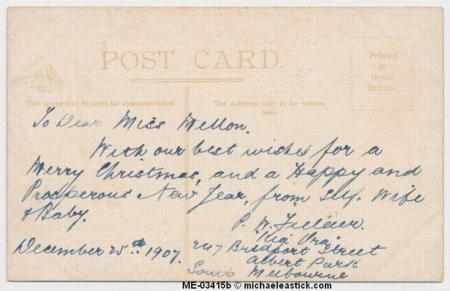 POST CARD.
Printed in Great Britain
This space may be used for communication
The Address only to be written here
To Dear Miss Mellon.
With our best wishes for a
Merry Christmas, and a Happy and
Prosperous New Year, from Self, Wife
& Baby.
P. H.
Kia Ora
December 25th 1907.
247 Bridport Street
Albert Park
South Melbourne
ME-03415b © michaeleastick.com